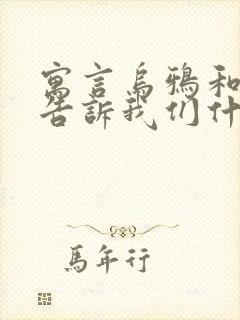 寓言烏鴉和
告訴我们什
馬年行